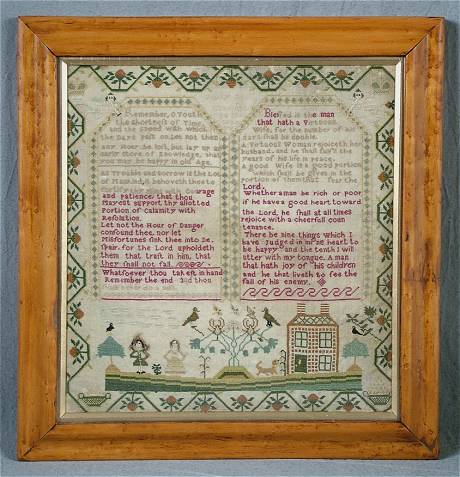 Remember, O Youth
the shortness of Time
and the speed with which
the Days pass on Let not then
any Hour be lost, but lay up
early store of Knowledge, that
you may be happy in old Age.
As Trouble and Sorrow is the Lot
of Mankind, it behoveth thee to
courage
and patience, that thou
Mayest support thy allotted
Portion of Calamity with
Resolution.
Let not the Hour of Danger
confound thee, nor let
Misfortunes sink thee into De
spair, for the Lord upholdeth
them that trust in him, that
they shall not fall
Whatsoever thou takest in hand
Remember the end and thou
Blessed is the man
that hath a Vertuous
Wife, for the number of his
days shall be double.
A Vertuous Woman rejoiceth her
husband, and he shall
years of his life in peace.
A good Wife is a good portion
which shall be given in the
portion of them that fear the
Lord.
Whether a man be rich or poor
if he have a good heart toward
the Lord, he shall at all times
rejoice with a cheerfull coun
tenance.
There be nine things which I
have Judged in my heart to
be happy and the tenth I will
utter with my tongue. A man
that hath joy of his children
and he that liveth to see the
fall of his enemy.